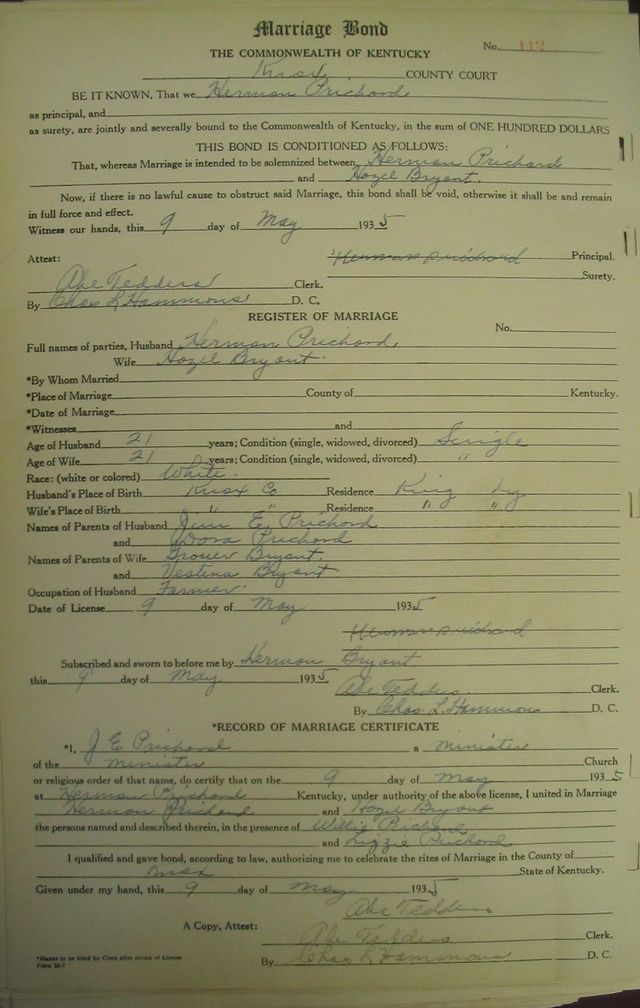 Marriage Bond
THE COMMONWEALTH OF KENTUCKY No. 112
Knox COUNTY COURT
BE IT KNOWN, That we Herman Prichard
as principal, and
as surety, are jointly and severally bound to the Commonwealth of Kentucky, in the sum of ONE HUNDRED DOLLARS
THIS BOND IS CONDITIONED AS FOLLOWS:
That, whereas Marriage is intended to be solemnized between Herman Prichard
and Hozel Bryant.
Now, if there is no lawful cause to obstruct said Marriage, this bond shall be void, otherwise it shall be and remain
in full force and effect.
Witness our hands, this 9 day of May 1935
Attest: Herman prichard Principal.
Surety.
Abe Tedders Clerk.
By Chas L Hammons D. C.
REGISTER OF MARRIAGE
No.
Full names of parties, Husband Herman Prichard
Wife Hozel Bryant.
*By Whom Married
*Place of Marriage County of Kentucky.
*Date of Marriage
*Witnesses and
Age of Husband 21 years; Condition (single, widowed, divorced) Single
Age of Wife 21 years; Condition (single, widowed, divorced) "
Race: (white or colored) White.
Husband's Place of Birth Knox Co Residence King Ky
Wife's Place of Birth " " Residence " "
Names of Parents of Husband Jim E. Prichard
and Dora Prichard
Names of Parents of Wife Grover Bryant.
and Vestena Bryant
Occupation of Husband Farmer.
Date of License 9 day of May 1935
Herman prichard
Subscribed and sworn to before me by Herman Bryant
this 9 day of May 1935
Abe Tedders Clerk.
By Chas L. Hammons D. C.
*RECORD OF MARRIAGE CERTIFICATE
*I, J E Prichard a minister
of the minister Church
or religious order of that name, do certify that on the 9 day of May 1935
at Herman Prichard Kentucky, under authority of the above license, I united in Marriage
Herman Prichard and Hozel Bryant
the persons named and described therein, in the presence of Willie Prichard
and Lizzie Prichard
I qualified and gave bond, according to law, authorizing me to celebrate the rites of Marriage in the County of
Knox State of Kentucky.
Given under my hand, this 9 day of May 1935
Abe Tedders
A Copy, Attest:
Abe Tedders Clerk.
By Chas L Hammons D. C.
*Blanks to be filled by Clerk after return of License